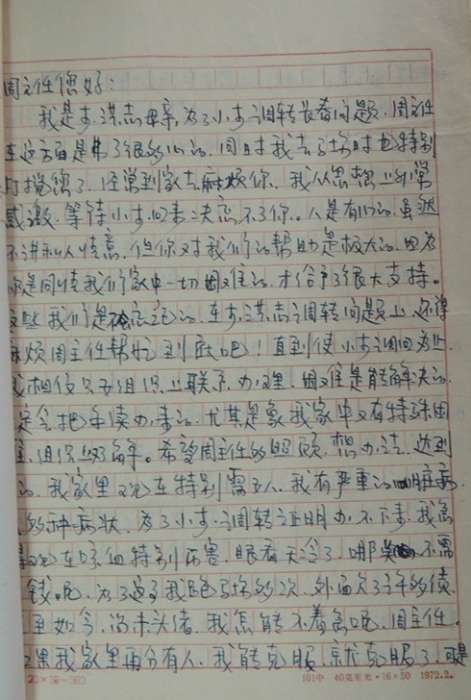 周主任您好：
我是李洪志母亲，为了小李调转长春问题，周主任
在这方面是费了很多心的，同时我去了场时也特别
打搅您了，经常到家去麻烦你，我从思想上非常
感激，等待小李回来决忘不了你。人是有心的，虽然
不讲私人情意，但你对我们的帮助是极大的，因为
你是同情我们家中一切困难的，才给予了很大支持。
这些我们是不会忘记的，在李洪志调转问题上，还得
麻烦周主任帮忙到底吧！直到使小李调回为止，
我相信只要组织上联系办理，困难是能解决的
定会把手续办来的，尤其是象我家中又有特殊困
组织上了解。希望周主任多照顾，想办法，达到
的，我家里现在特别需要人，我有严重的心脏病
多种病状，为了小李调转证明办不下来，我急
现在咳血特别历害，眼看天冷了，哪 不需
钱呢，为了这事我跑了场多次，外面欠了许多债，
至如今，尚未头绪，我怎能不着急呢，周主任，
如果我家里再分有人，我能克服就克服了，可是
20×20=360 101中 40克有光·16×50 1972.2.